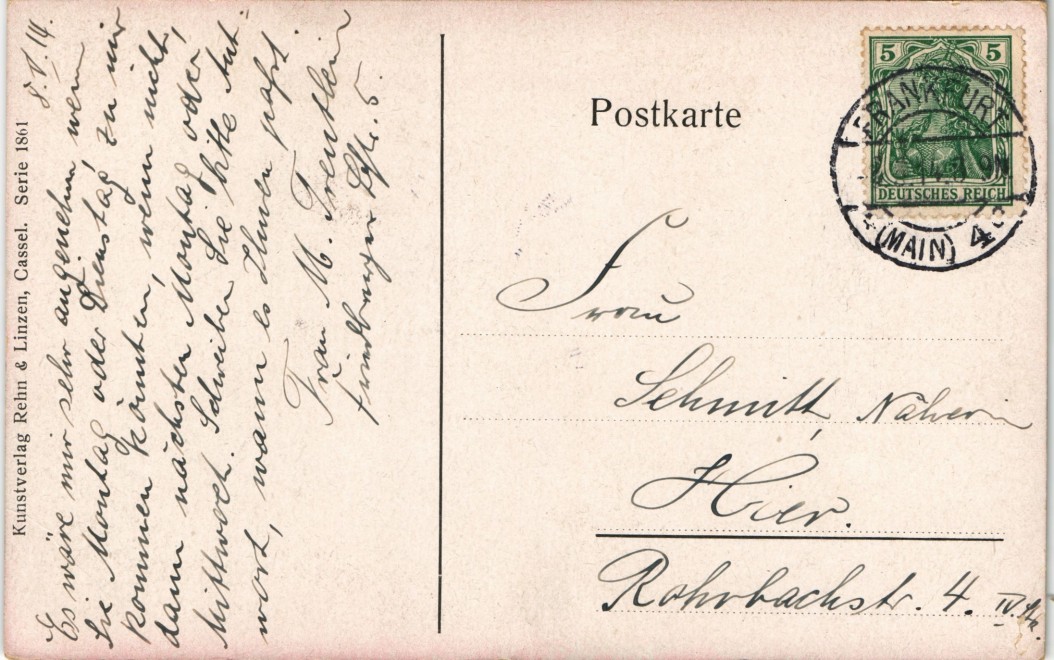 8.V.14.
Es wäre mir sehr angenehm wenn
Sie Montag oder Dienstag zu mir
kommen könnten, wenn nicht,
dann nächsten Montag oder,
Mittwoch. Schreiben Sie bitte Ant-
wort, wann es Ihnen paßt.
Frau M.
Friedberger Ldstr. 5.
Kunstverlag Rehn & Linzen, Cassel. Serie 1861
Postkarte
5 5
DEUTSCHES REICH
FRANKFURT
(MAIN)
Frau
Schmitt, Näherin
Hier.
Rohrbachstr. 4. IV. St.